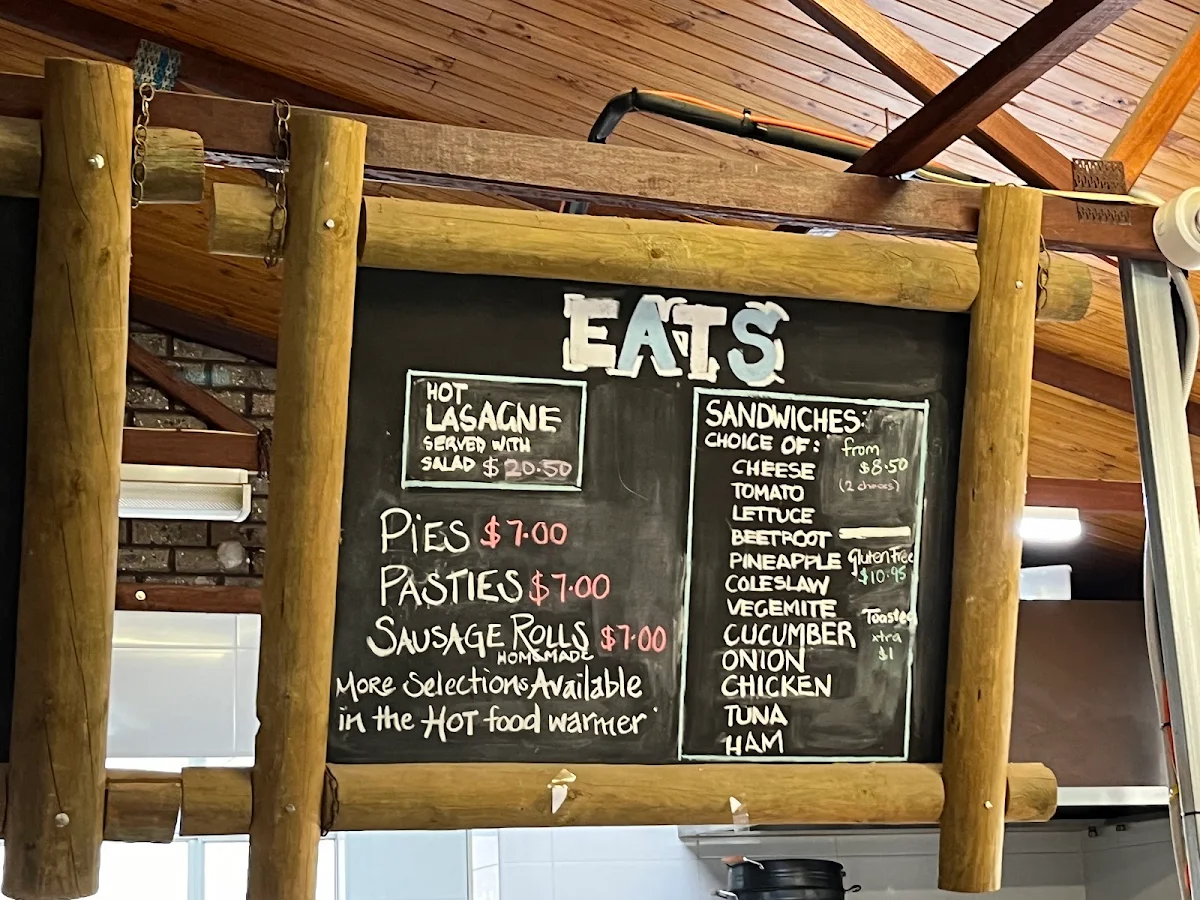 EATS
HOT
LASAGNE
SERVED WITH
SALAD $20.50
PIES $7.00
PASTIES $7.00
SAUSAGE ROLLS $7.00
HOMEMADE
More Selections Available
in the HOT food warmer
SANDWICHES:
CHOICE OF:
from
$8.50
(2 choices)
CHEESE
TOMATO
LETTUCE
BEETROOT
PINEAPPLE
COLESLAW
VEGEMITE
CUCUMBER
ONION
CHICKEN
TUNA
HAM
Gluten Free
$10.95
Toasted
xtra
$1